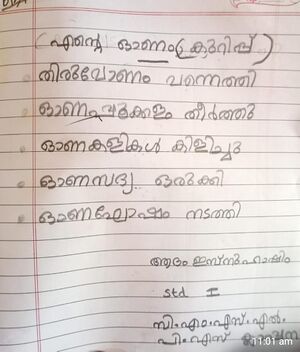 ( എന്റെ ഓണം കുറിപ്പ് )
തിരുവോണം വന്നെത്തി
ഓണപൂക്കളം തീർത്തു
ഓണകളികൾ കളിച്ചു
ഓണസദ്യ ഒരുക്കി
ഓണഘോഷം നടത്തി
ആദം ഇബ്നുഹാഷിം
std I
സി.എം.എസ്.എൽ.
പി.എസ്
11:01 am